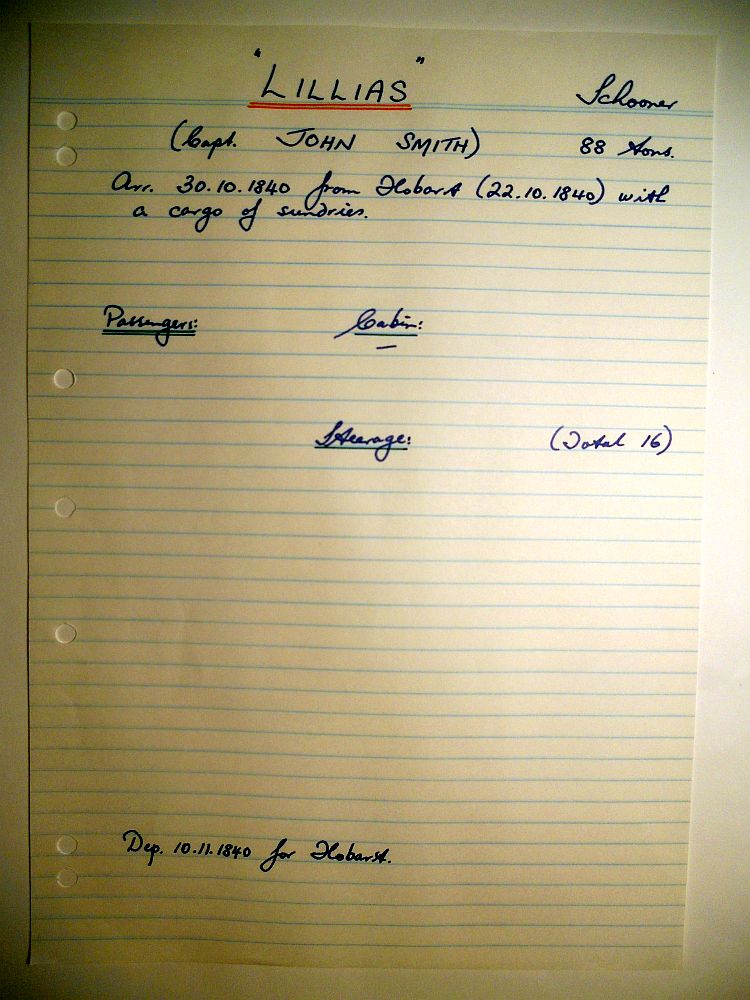 "LILLIAS" Schooner
(Capt. JOHN SMITH) 88 tons.
Arr. 30.10.1840 from Hobart (22.10.1840) with
a cargo of sundries.
Passengers: Cabin:
—
Steerage: (Total 16)
Dep. 10.11.1840 for Hobart.